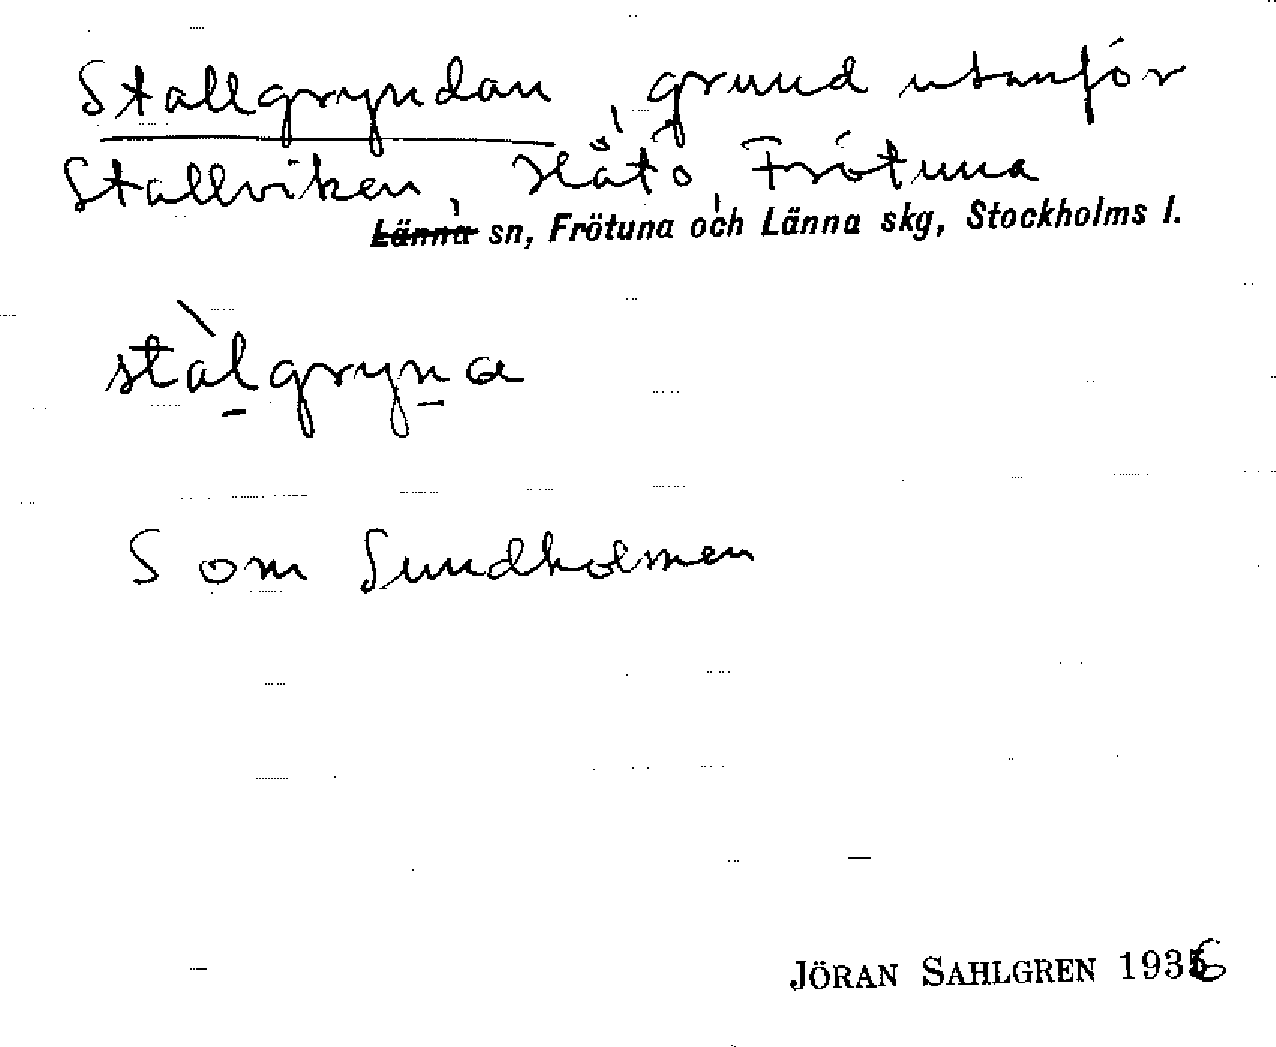 Stallgryndan, grund utanför
Stallviken, Håtö, Frötuna
Länna sn, Frötuna och Länna skg, Stockholms l.
stàlgryna
S om Sundholmen
JÖRAN SAHLGREN 1936